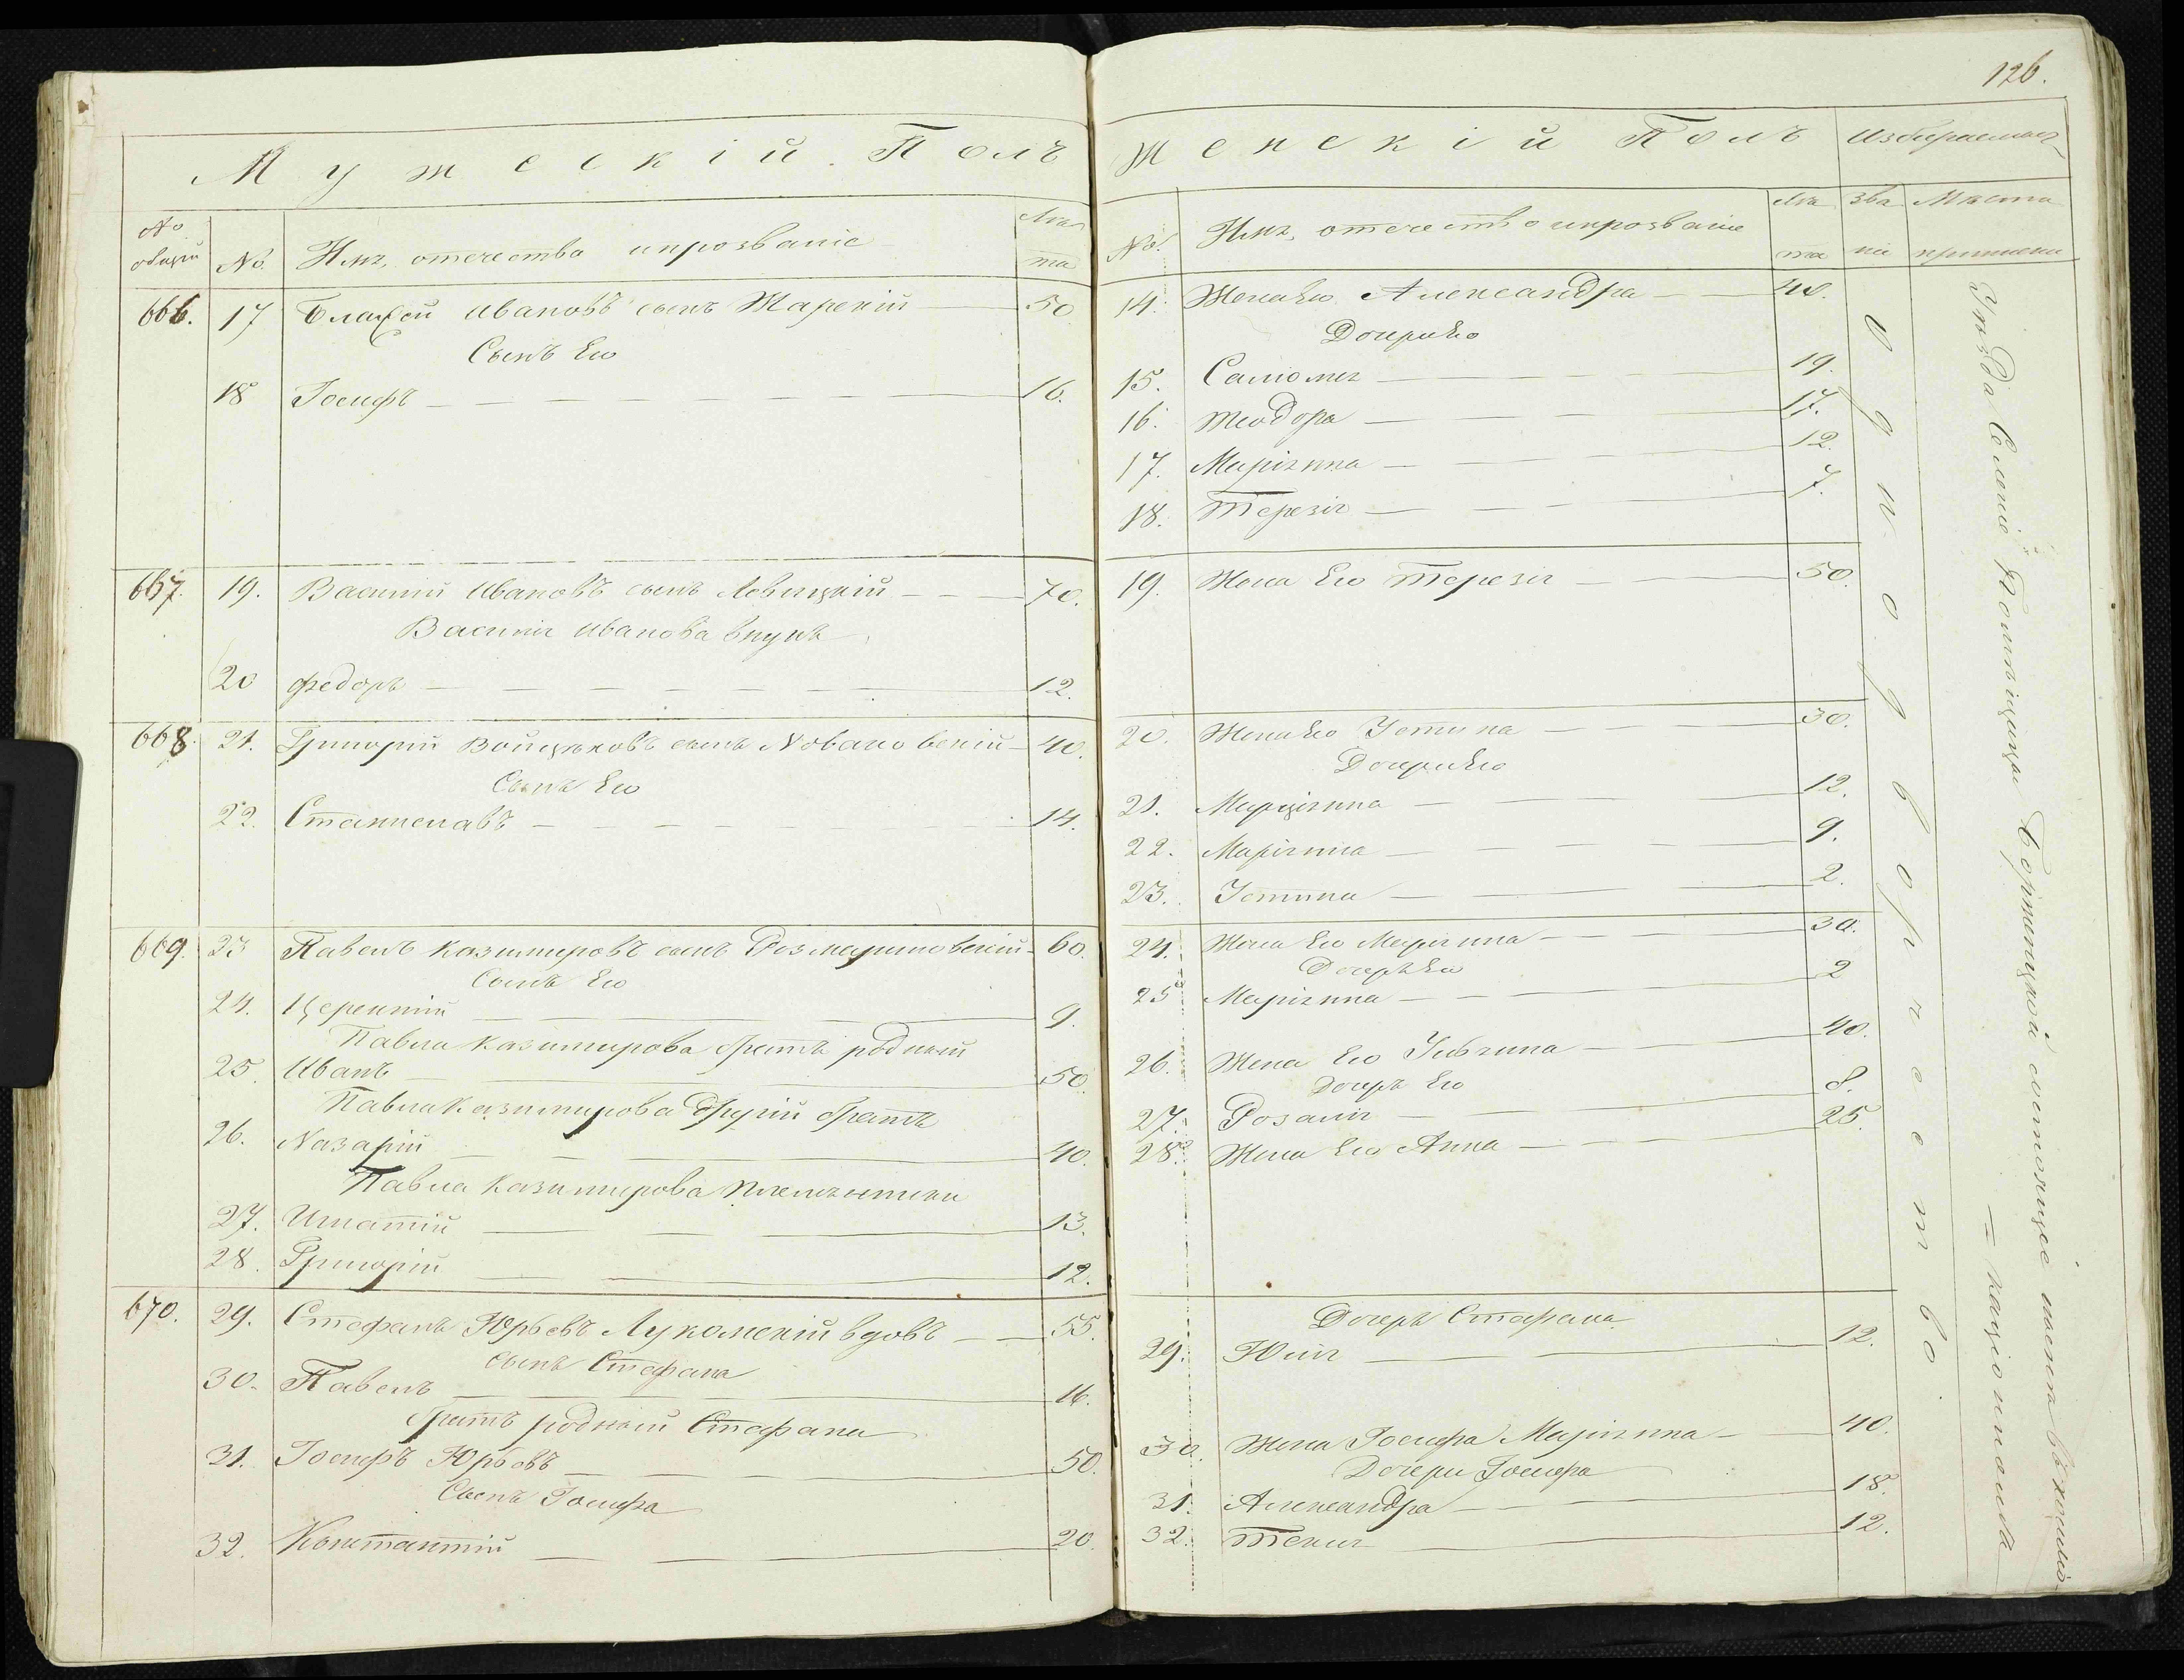 126.
Мужескій Полъ
№ общій № Имя, отечества и прозваніе Лѣта
666. 17 Блажей Ивановъ сынъ Жарскій — 50
Сынъ Его
18 Іосифъ — 16.
667. 19. Василій Ивановъ сынъ Левицкій — 70.
Василія Иванова внукъ
20 Федоръ — 12.
668. 21. Григорій Войцѣховъ сынъ Новаковскій — 40.
Сынъ Его
22. Станиславъ — 14.
669. 23 Павелъ Казимировъ сынъ Розмариновскій — 60.
Сынъ Его
24. Терентій — 9.
Павла Казимирова братъ родный
25. Иванъ — 50
Павла Казимирова другій братъ
26. Назарій — 40.
Павла Казимирова племянники
27. Игнатій — 13.
28. Григорій — 12.
670. 29. Стефанъ Юрьевъ Лукомскій вдовъ — 55.
сынъ Стефана
30. Павелъ — 16.
братъ родный Стефана
31. Іосифъ Юрьевъ — 50.
Сынъ Іосифа
32. Константій — 20.
Женскій Полъ Избираемыя
№. Имя, отечество и прозваніе Лѣта Званіе Мѣста приписки
14. Жена Его Александра — 40.
Дочери Его
15. Саломея — 19.
16. Теодора — 17.
17. Маріянна — 12.
18. Терезія — 7.
19. Жена Его Терезія — 50.
20. Жена Его Устина — 30.
Дочери Его
21. Марціянна — 12.
22. Маріянна — 9.
23. Устина — 2.
24. Жена Его Маріянна — 30.
Дочеръ Его
25. Маріянна — 2
26. Жена Его — 40.
Дочерь Его
27. Розалія — 8.
28. Жена Его Анна — 25.
Дочерь Стефана
29. Юлія — 12.
30. Жена Іосифа Маріянна — 40.
Дочери Іосифа
31. Александра — 18.
32. Текля — 12.
Однодворчество.
Уѣзда Селеніе Помѣщицы